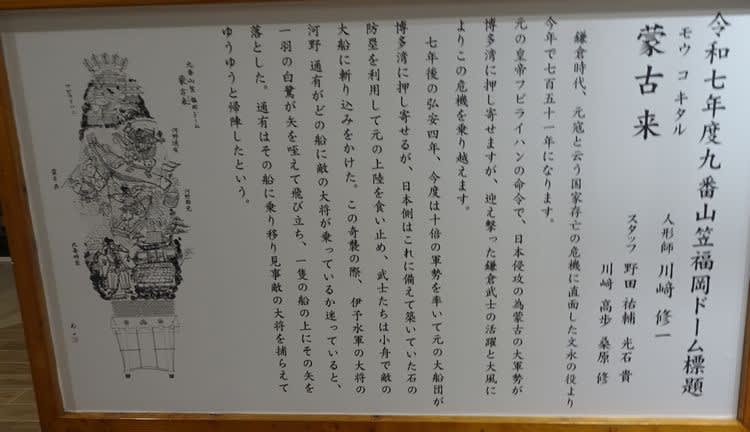 令和七年度九番山笠福岡ドーム標題
モウ コ キタル
蒙古来
人形師 川﨑 修一
スタッフ 野田 祐輔 光石 貴
川﨑 高歩 桑原 修
鎌倉時代、元寇と云う国家存亡の危機に直面した文永の役より
今年で七百五十一年になります。
元の皇帝フビライハンの命令で、日本侵攻の為蒙古の大軍勢が
博多湾に押し寄せますが、迎え撃った鎌倉武士の活躍と大風に
よりこの危機を乗り越えます。
七年後の弘安四年、今度は十倍の軍勢を率いて元の大船団が
博多湾に押し寄せるが、日本側はこれに備えて築いていた石の
防塁を利用して元の上陸を食い止め、武士たちは小舟で敵の
大船に斬り込みをかけた。この奇襲の際、伊予水軍の大将の
河野 通有がどの船に敵の大将が乗っているか迷っていると、
一羽の白鷺が矢を咥えて飛び立ち、一隻の船の上にその矢を
落とした。通有はその船に乗り移り見事敵の大将を捕らえて
ゆうゆうと帰陣したという。
九番山笠 福岡ドーム
蒙古来
河野通有